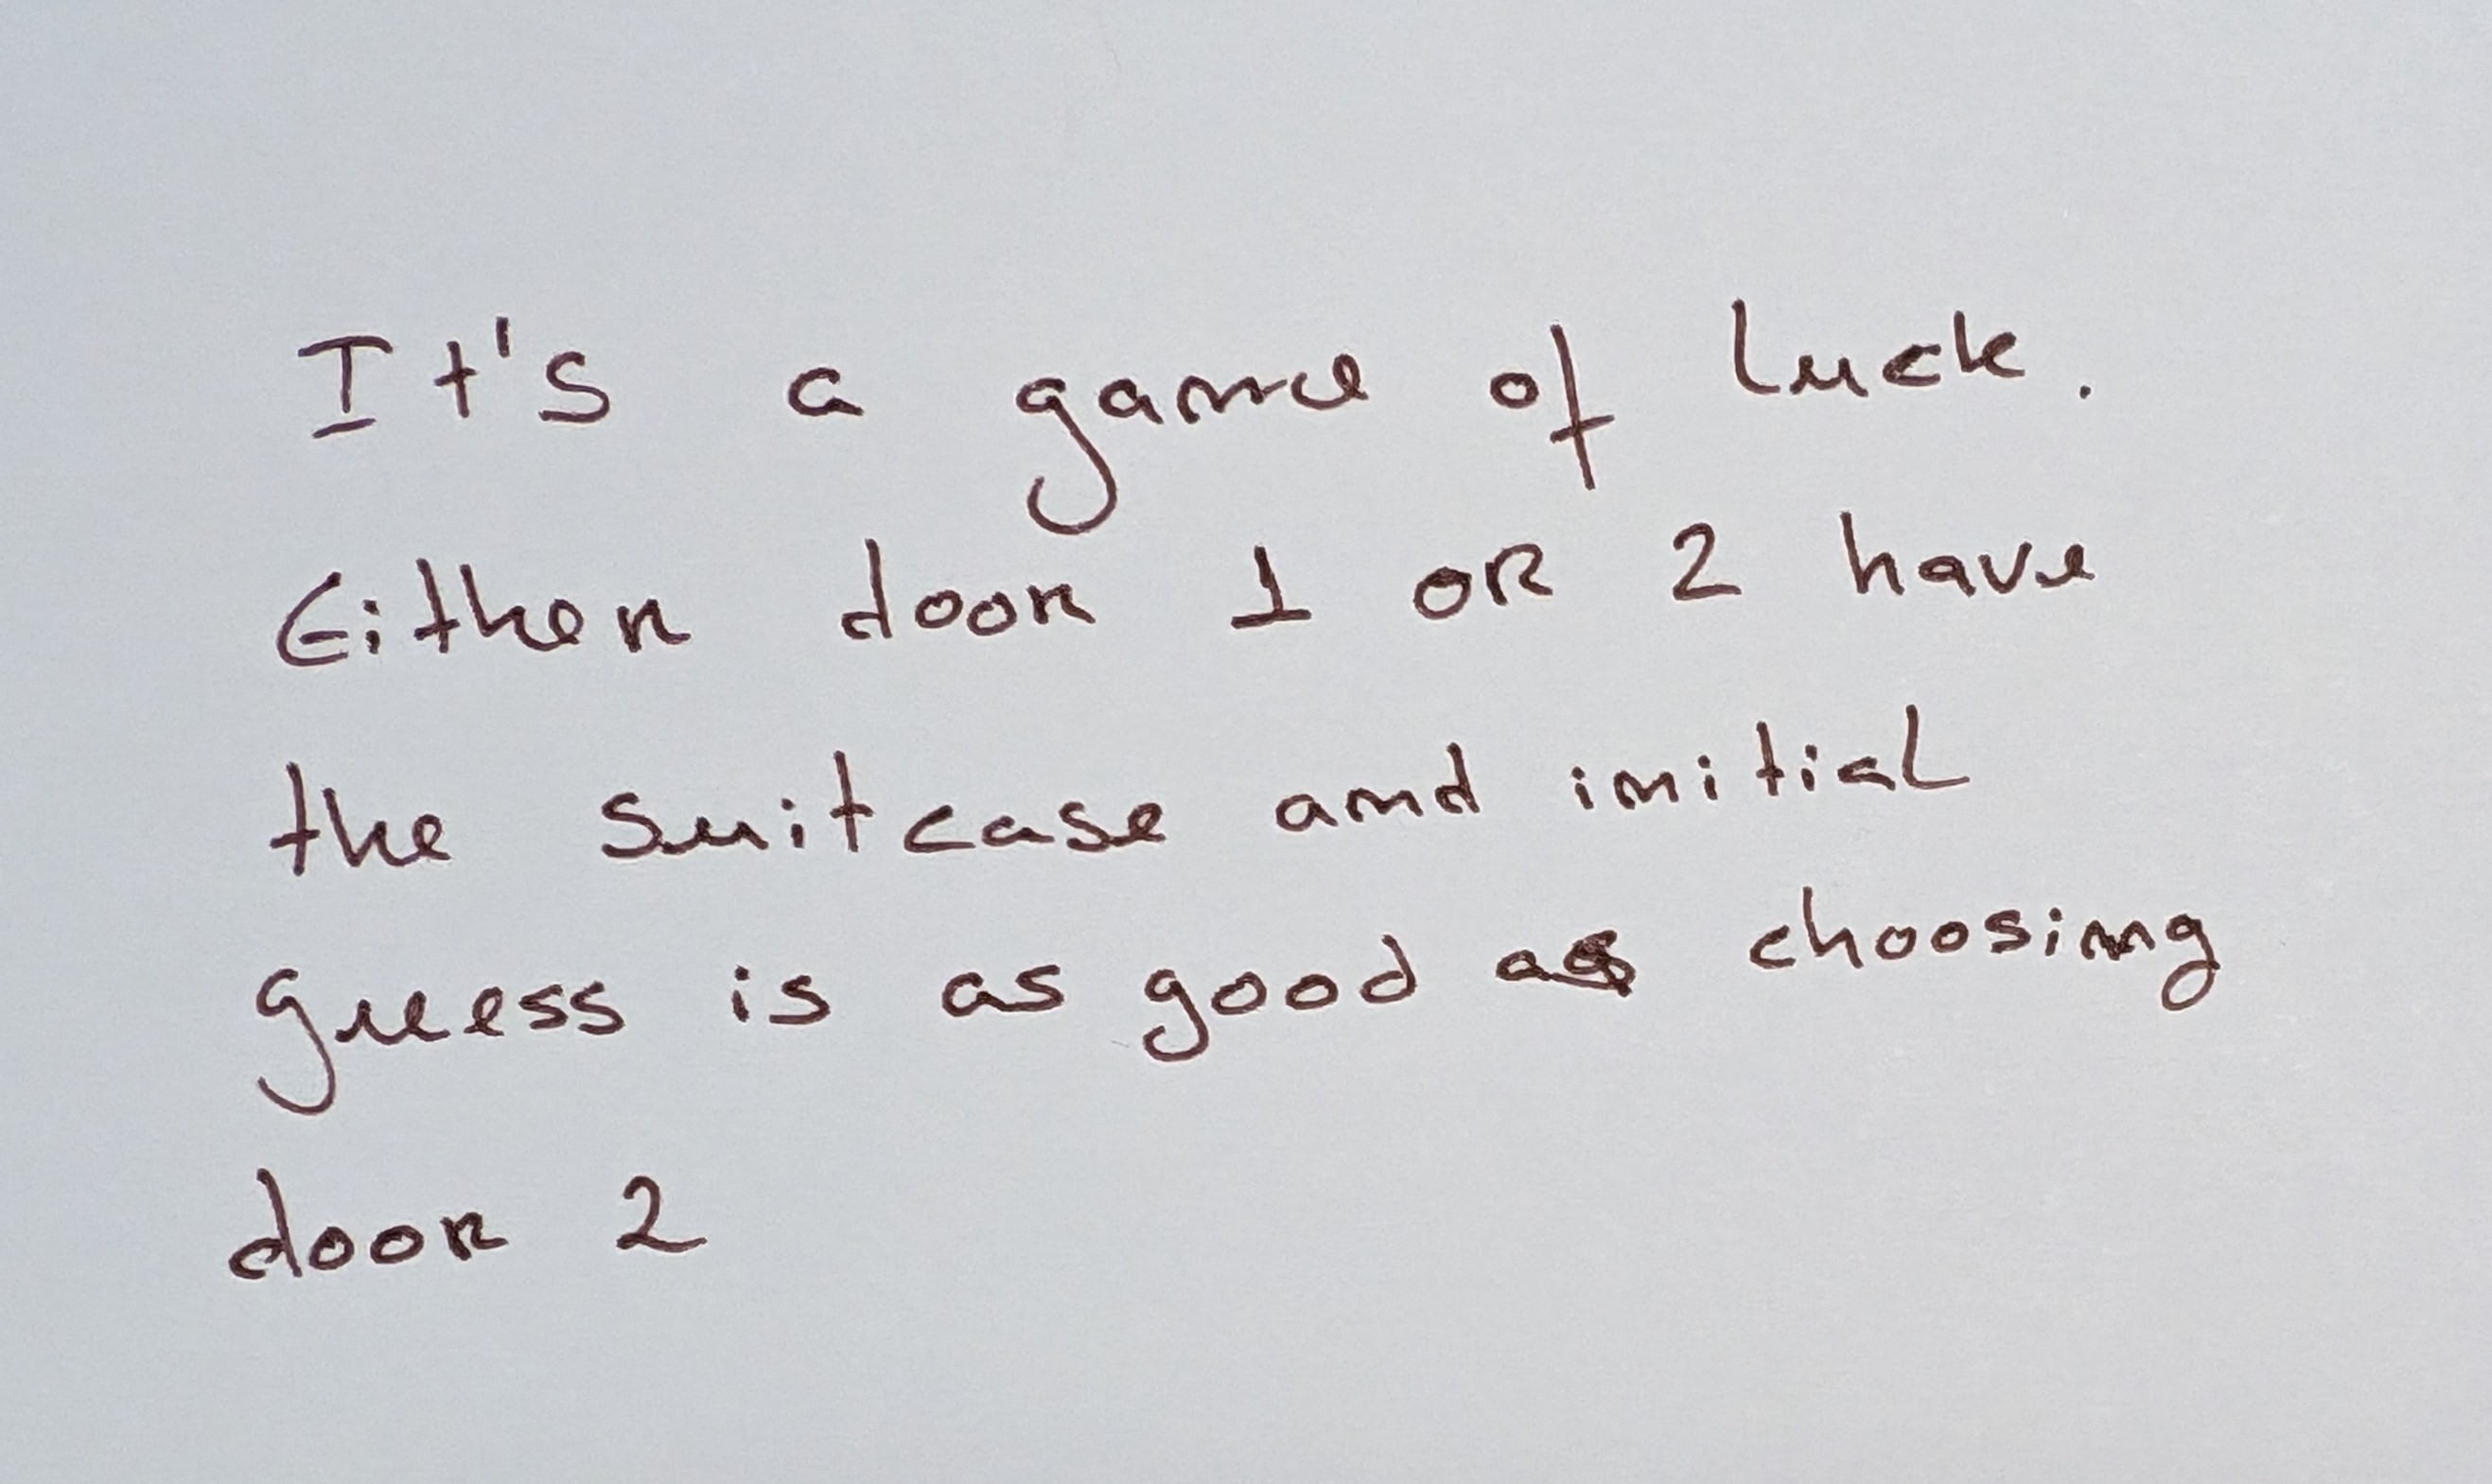 It's a game of luck.
Either door 1 OR 2 have
the suitcase and initial
guess is as good as choosing
door 2